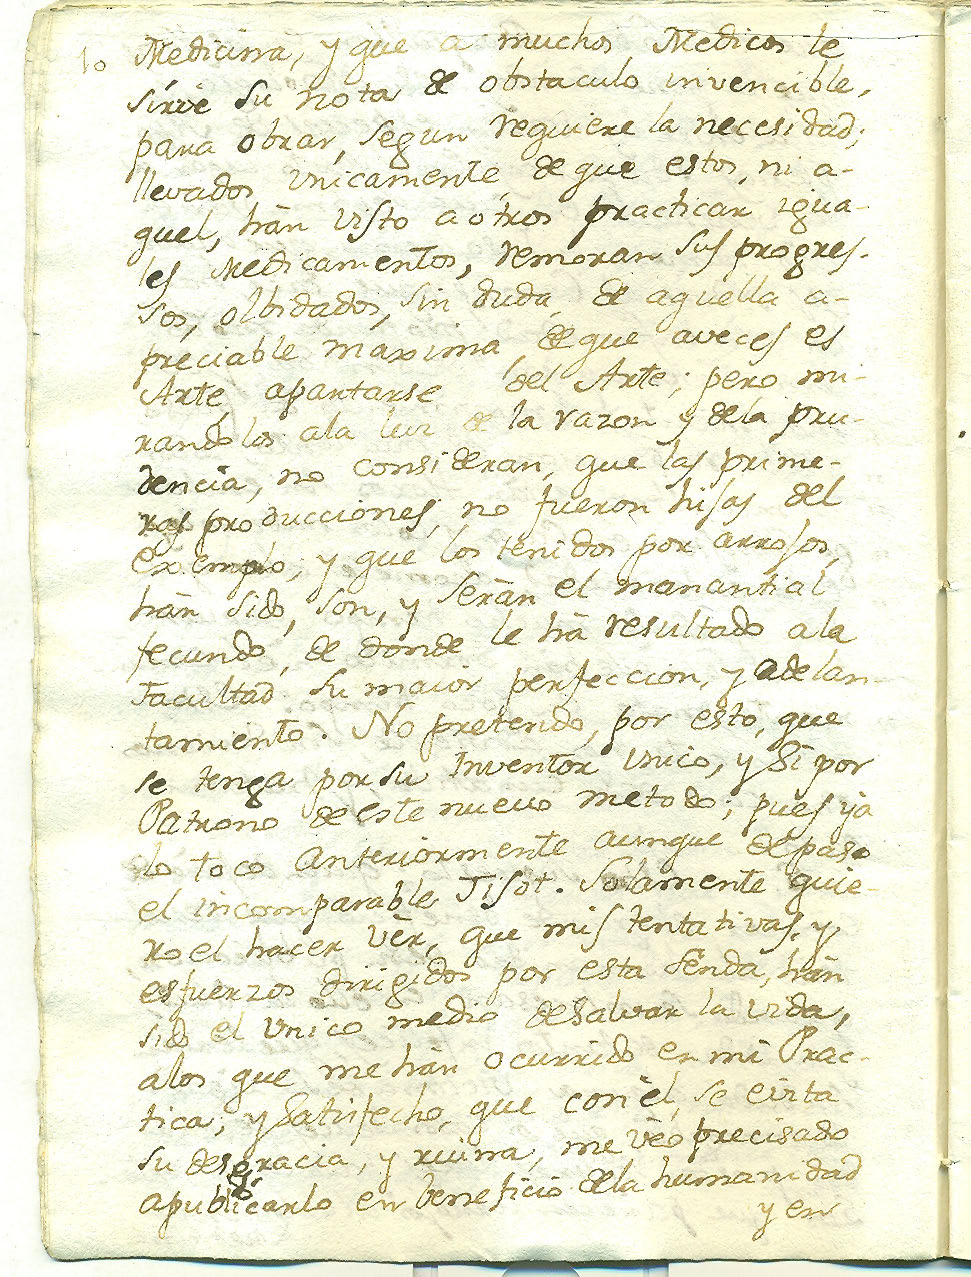 10 Medicina, y que a muchos Medicos le
sirve su nota de obstaculo invencible,
para obrar, segun requiere la necesidad;
llevados unicamente, de que estos, ni a-
quel, hàn visto a otros practicar igua-
les Medicamentos, remoran sus progres-
sos, olbidados, sin duda, de aquella a-
preciable maxima, de que aveces es
Arte, apartarse del Arte; pero mi-
randolos ala luz de la razon y dela pru-
dencia, no consideran, que las prime-
ras producciones, no fueron hijas del
exemplo; y que los tenidos por arrojos,
hàn sido, son, y seràn el manantial
fecundo, de donde le hà resultado ala
Facultad su maior perfeccion, y adelan-
tamiento. No pretendo, por esto, que
se tenga por su Inventor unico, y Si por
Patrono de este nuevo metodo; pues ya
lo toco anteriormente aunque de paso
el incomparable Tisot. Solamente quie-
ro el hacer vèr, que mis tentativas, y
esfuerzos dirigidos por esta senda, hàn
sido el unico medio desalvar la vida,
alos que me hàn ocurrido en mi Prac-
tica; y Satisfecho, que con èl, se evita
su desgracia, y ruina, me vèo precisado
apublicarlo en beneficio dela humanidad
y en